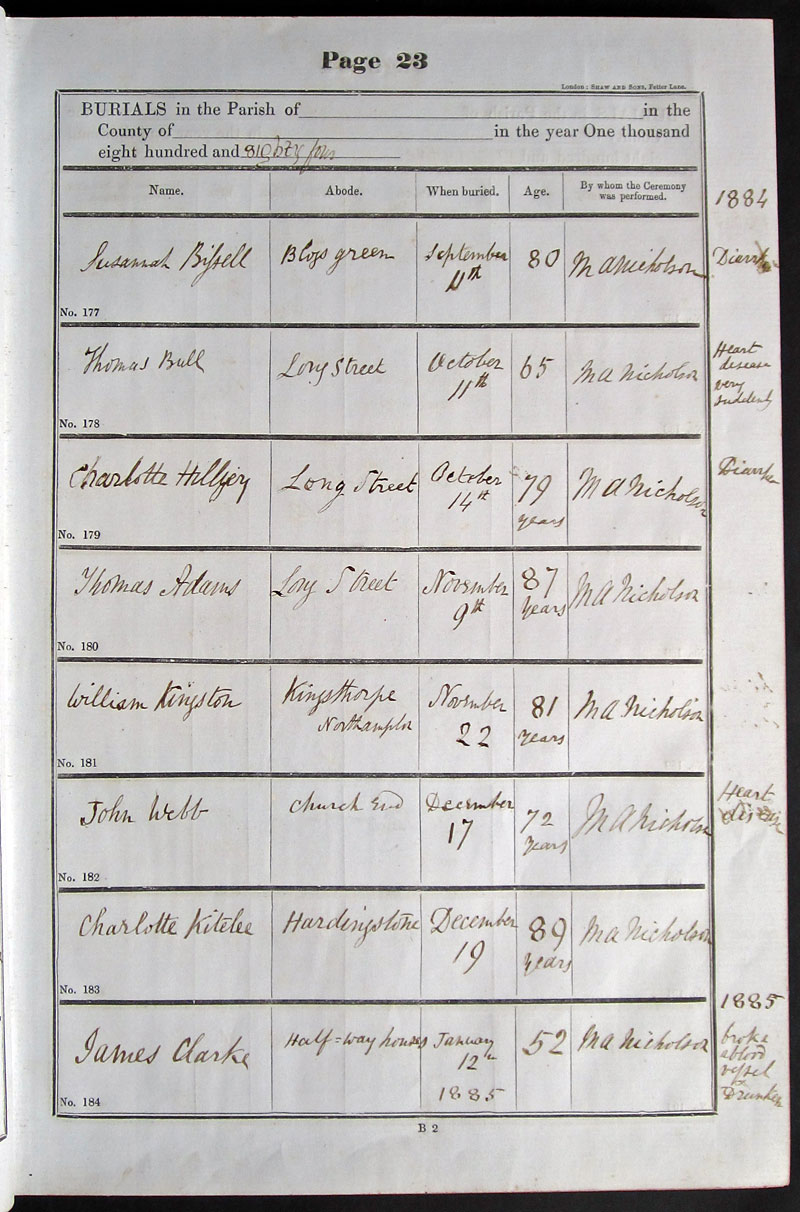 Page 23
London: Shaw and Sons, Fetter Lane.
BURIALS in the Parish of in the
County of in the year One thousand
eight hundred and eighty four
Name. Abode. When buried. Age. By whom the Ceremony was performed.
1884
Susannah Bissell Blogs green September 11th 80 M A Nicholson
No. 177
Thomas Bull Long Street October 11th 65 M A Nicholson Heart disease very suddenly
No. 178
Charlotte Long Street October 14th 79 years M A Nicholson
No. 179
Thomas Adams Long Street November 9th 87 years M A Nicholson
No. 180
William Kingston Kingsthorpe Northampton November 22 81 years M A Nicholson
No. 181
John Webb Church End December 17 72 years M A Nicholson Heart disease
No. 182
Charlotte Kitelee Hardingstone December 19 89 years M A Nicholson
No. 183
1885
James Clarke Half=way houses January 12th 1885 52 M A Nicholson broke a blood vessel Drunken
No. 184
B 2